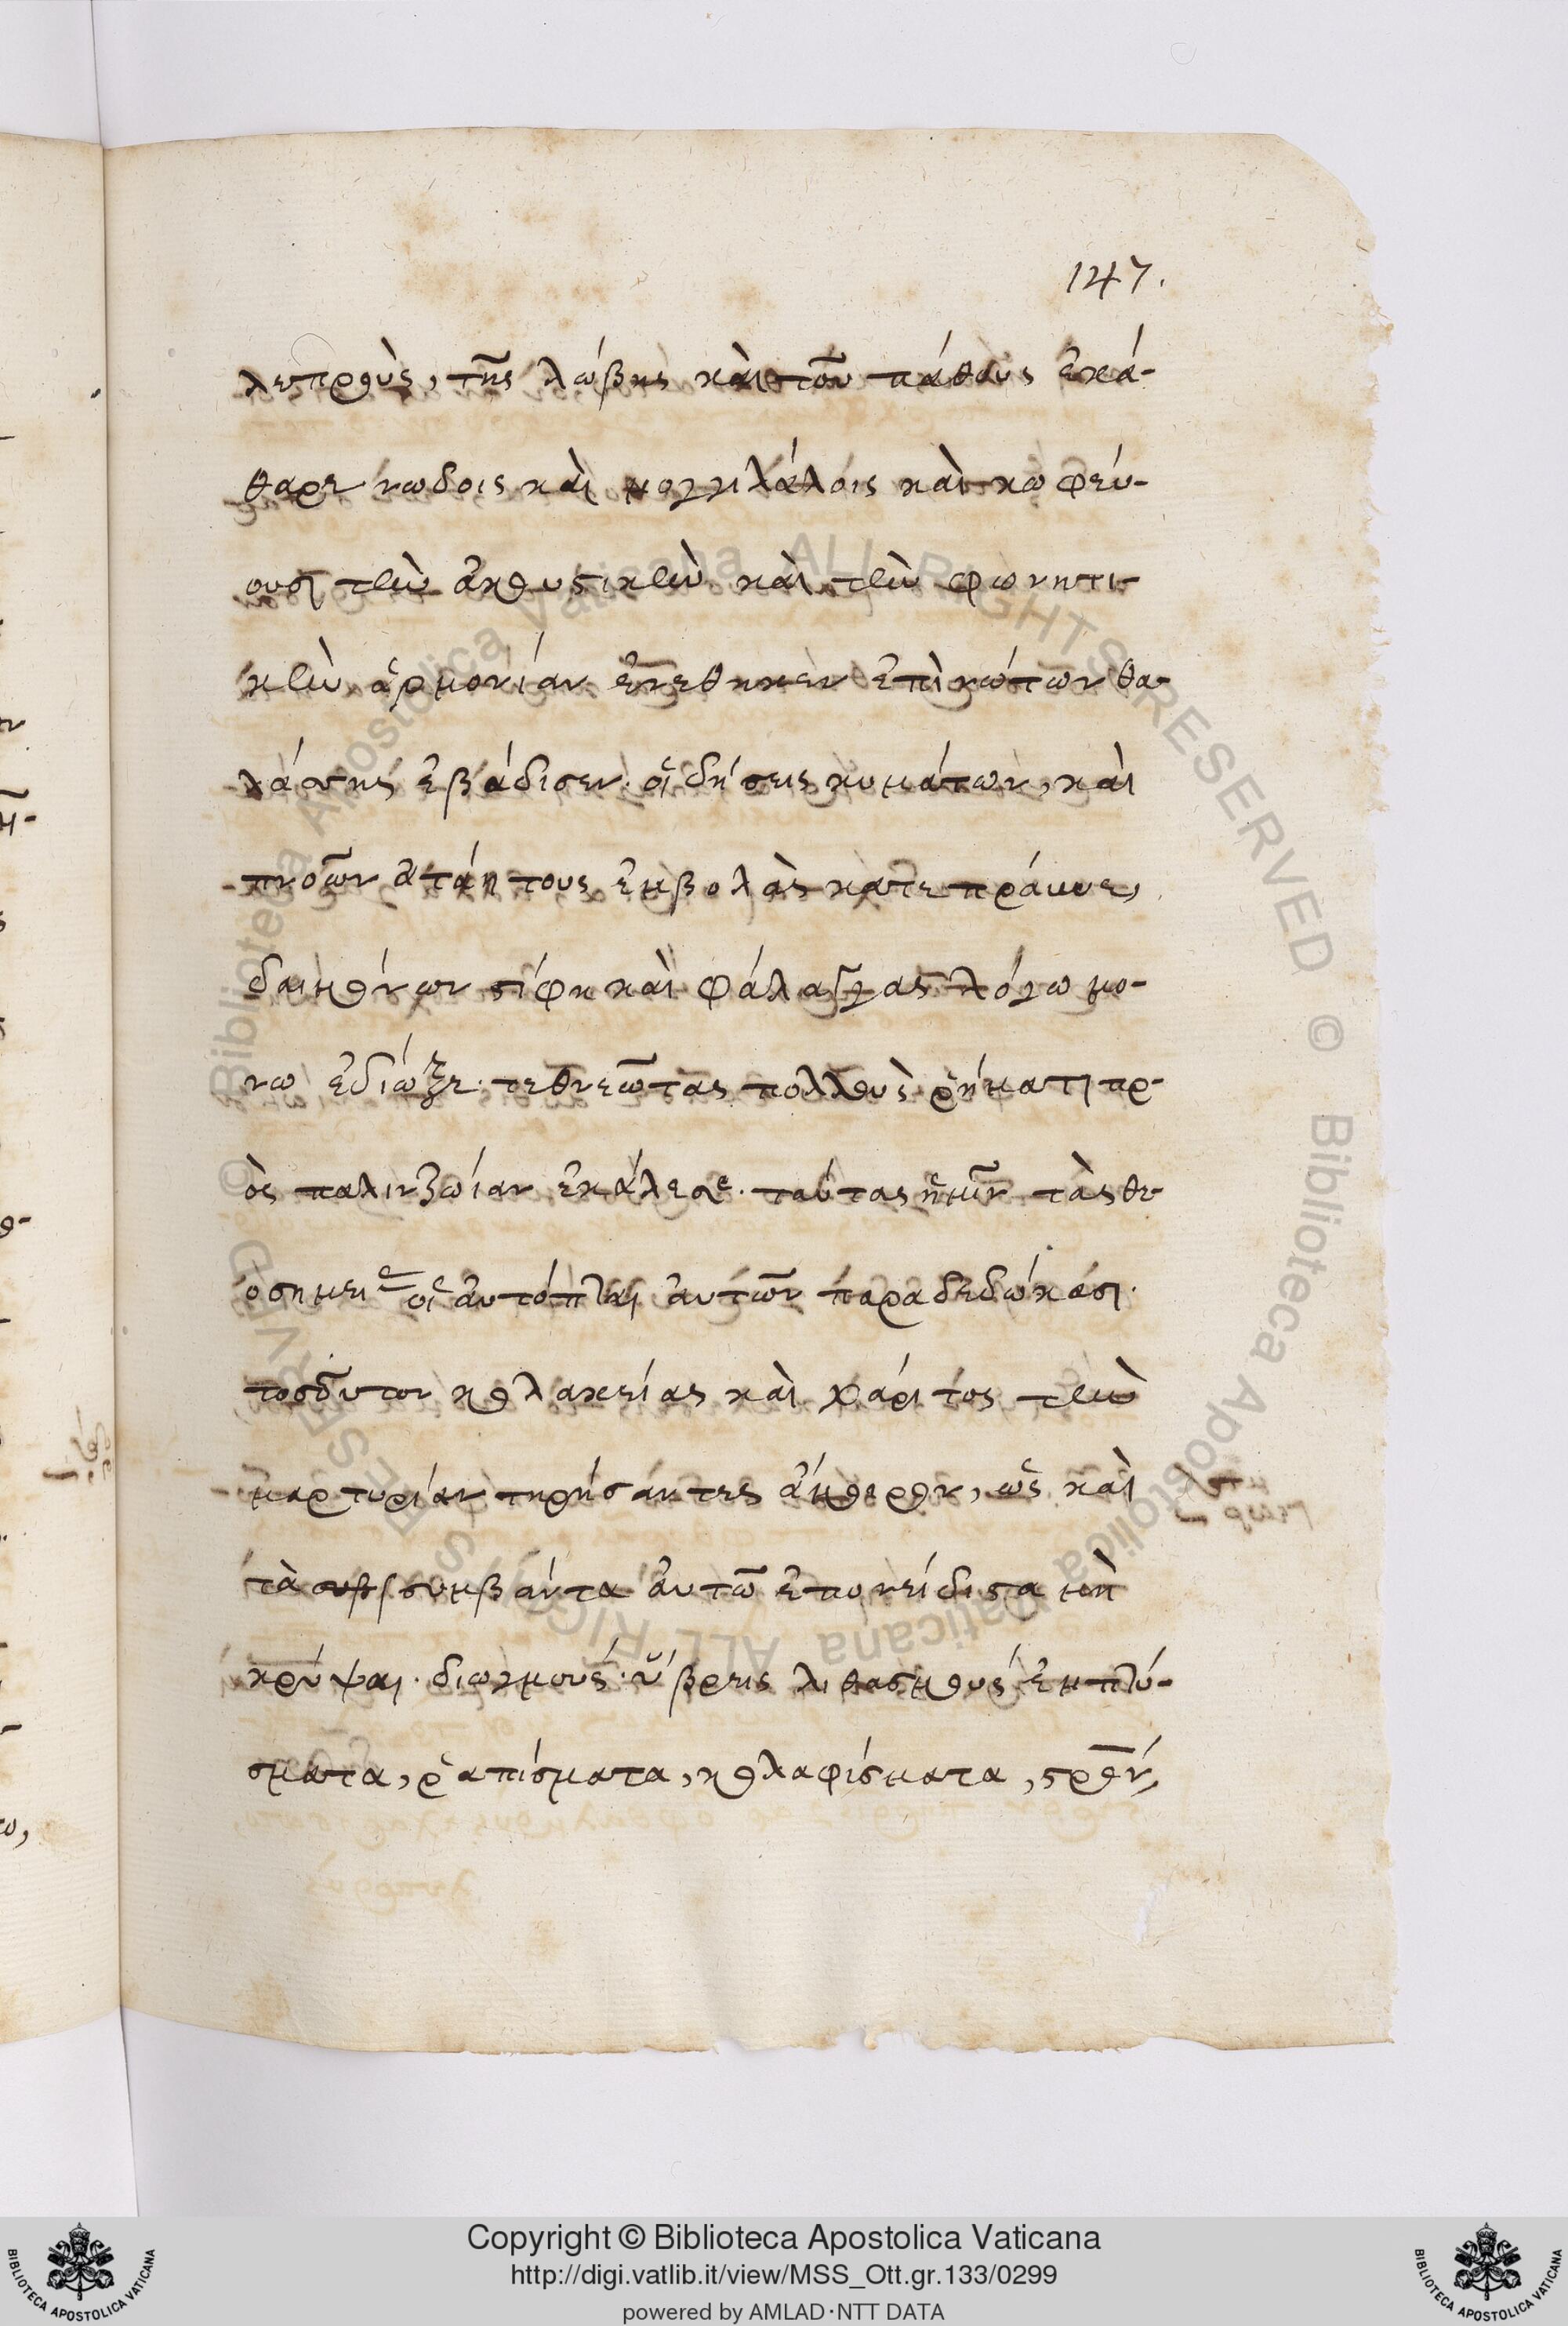 147.
λεπροὺς, τῆς λώβης καὶ τοῦ πάθους ἐκά-
θαρε νωδοις καὶ μογγιλάλοις καὶ κωφεύ-
ουσι τὴν ἀκουστικὴν καὶ τὴν φωνητι-
κὴν ἁρμονίαν ἐνέθηκεν ἐπὶ νώτων θα-
λάσσης ἐβάδισεν. οἰδήσεις κυμάτων, καὶ
πνοῶν ἀτάκτους ἐμβολὰς κατεπράυνε,
δαιμόνων στίφη καὶ φάλαγγας λόγω μο-
νω ἐδίωξε. τεθνεῶτας πολλοὺς ῥήματι πρ-
ὸς παλινζωίαν ἐκάλεσε. ταύτας ἡμῖν τὰς θε-
οσημείας οἱ αὐτόπται αὐτῶν παραδεδώκασι.
τοσοῦτον κολακείας καὶ χάριτος τὴν
μαρτυρίαν τηρήσαντες ἄμοιρον, ὡς καὶ
τὰ συμβάντα αὐτῶ ἐπονείδιστα μὴ
κρύψαι. διωγμούς. ὕβρεις λιθασμούς ἐμπτύ-
σματα, ῥαπίσματα, κολαφίσματα, στρον,
Copyright © Biblioteca Apostolica Vaticana
http://digi.vatlib.it/view/MSS_Ott.gr.133/0299
powered by AMLAD·NTT DATA
BIBLIOTECA APOSTOLICA VATICANA
BIBLIOTECA APOSTOLICA VATICANA
© Biblioteca Apostolica Vaticana ALL RIGHTS RESERVED
© Biblioteca Apostolica Vaticana ALL RIGHTS RESERVED